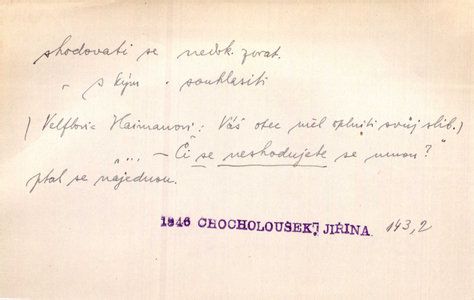 shodovati se nedok. zvrat.
„ s kým „ souhlasiti
) Velflovic Haimanovi: Váš otec měl oplniti svůj slib.)
„... – Či se neshodujete se mnou?"
ptal se najednou.
1846 CHOCHOLOUŠEK, JIŘINA. 143,2